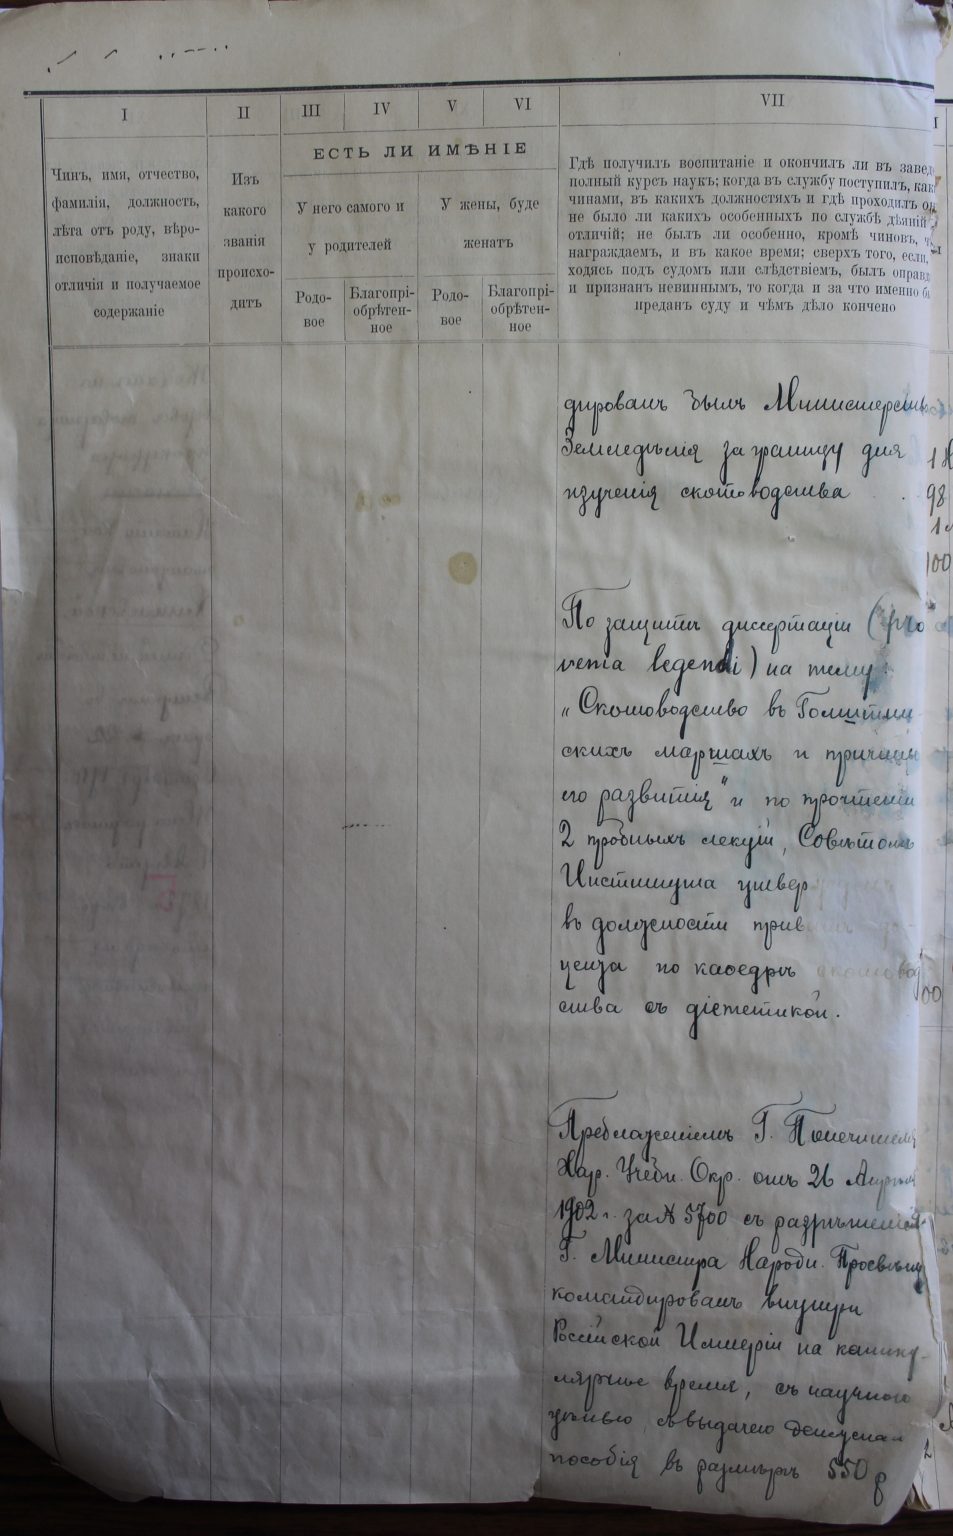 I
II
III
IV
V
VI
VII
ЕСТЬ ЛИ ИМѢНІЕ
Чинъ, имя, отчество,
фамилія, должность,
лѣта отъ роду, вѣро-
исповѣданіе, знаки
отличія и получаемое
содержаніе
Изъ
какого
званія
происхо-
дитъ
У него самого и
у родителей
У жены, буде
женатъ
Родо-
вое
Благопрі-
обрѣтен-
ное
Родо-
вое
Благопрі-
обрѣтен-
ное
Гдѣ получилъ воспитаніе и окончилъ ли въ завед
полный курсъ наукъ; когда въ службу поступилъ, как
чинами, въ какихъ должностяхъ и гдѣ проходилъ он
не было ли какихъ особенныхъ по службѣ дѣяній
отличій; не былъ ли особенно, кромѣ чиновъ, ч
награждаемъ, и въ какое время; сверхъ того, если,
ходясь подъ судомъ или слѣдствіемъ, былъ оправд
и признанъ невиннымъ, то когда и за что именно б
преданъ суду и чѣмъ дѣло кончено
дированъ былъ Министерств
Земледѣлія за границу для
изученія скотоводства
По защитѣ диссертаціи (pro
venia legendi) на тему:
„Скотоводство въ Голштин
скихъ маршахъ и причины
его развитія" и по прочтеніи
2 пробныхъ лекцій, Совѣтомъ
Института утвер
въ должности прив
цента по каѳедрѣ скотовод
ства съ діэтетикой.
Предложеніемъ Г. Попечителя
Хар. Учебн. Окр. отъ 26 Апрѣля
1902 г. за № 5700 съ разрѣшенія
Г. Министра Народн. Просвѣщ
командированъ внутри
Россійской Имперіи на канику-
лярное время, съ научною
цѣлью, съ выдачею
пособія въ размѣрѣ 550 р